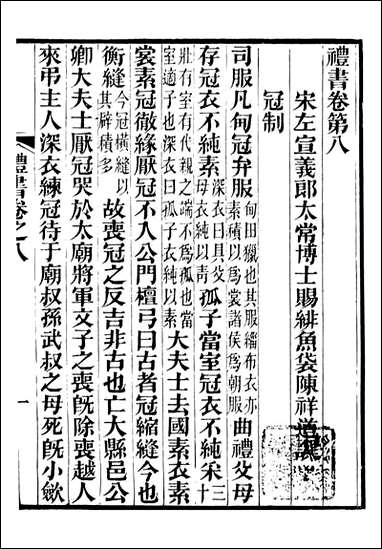 禮書卷第八
宋左宣義郎太常博士賜緋魚袋陳祥道
冠制
司服凡甸冠弁服甸田獵也其服緇布衣亦素積以爲裳諸侯爲朝服曲禮父母
存冠衣不純素深衣曰具父母衣純以靑孤子當室冠衣不純采三十
壯有室有代親之端不爲孤也當室適子也深衣曰孤子衣純以素大夫士去國素衣素
裳素冠徹緣厭冠不入公門檀弓曰古者冠縮縫今也
衡縫今冠橫縫以其辟積多故喪冠之反吉非古也亡大縣邑公
卿大夫士厭冠哭於太廟將軍文子之喪旣除喪越人
來弔主人深衣練冠待于廟叔孫武叔之母死旣小歛
禮書卷之八
一